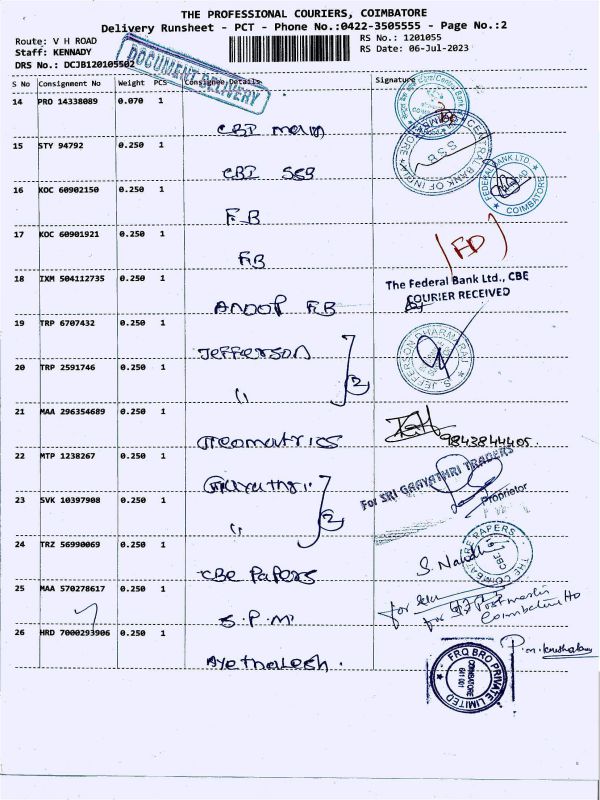 THE PROFESSIONAL COURIERS, COIMBATORE
Delivery Runsheet - PCT - Phone No.:0422-3505555 - Page No.:2
Route: V H ROAD
Staff: KENNADY
DRS No.: DCJB120105502
RS No.: 1201055
RS Date: 06-Jul-2023
DOCUMENT DELIVERY
S No Consignment No Weight PCS Consignee Details Signature
14 PRO 14338089 0.070 1
CBI main
15 STY 94792 0.250 1
CBI SSB
CENTRAL BANK OF INDIA
SSB
16 KOC 60902150 0.250 1
F.B
FEDERAL BANK LTD.
COIMBATORE
17 KOC 60901921 0.250 1
FB
18 IXM 504112735 0.250 1
ANOOP FB
The Federal Bank Ltd., CBE
COURIER RECEIVED
19 TRP 6707432 0.250 1
Jefferson
20 TRP 2591746 0.250 1
" 2
S. JEFFERSON DHARMARAJ
21 MAA 296354689 0.250 1
Geomatrics
9843844405.
22 MTP 1238267 0.250 1
Gayathri
For SRI GAAYATHRI TRADERS
Proprietor
23 SVK 10397908 0.250 1
" 2
24 TRZ 56990069 0.250 1
CBE PaPers
THE COIMBATORE PAPERS
CBE
S. Nandh
25 MAA 570278617 0.250 1
S.P.M
for Postmaster
Coimbatore Ho
26 HRD 7000293906 0.250 1
FRQ BRO PRIVATE LIMITED
COIMBATORE
641 001